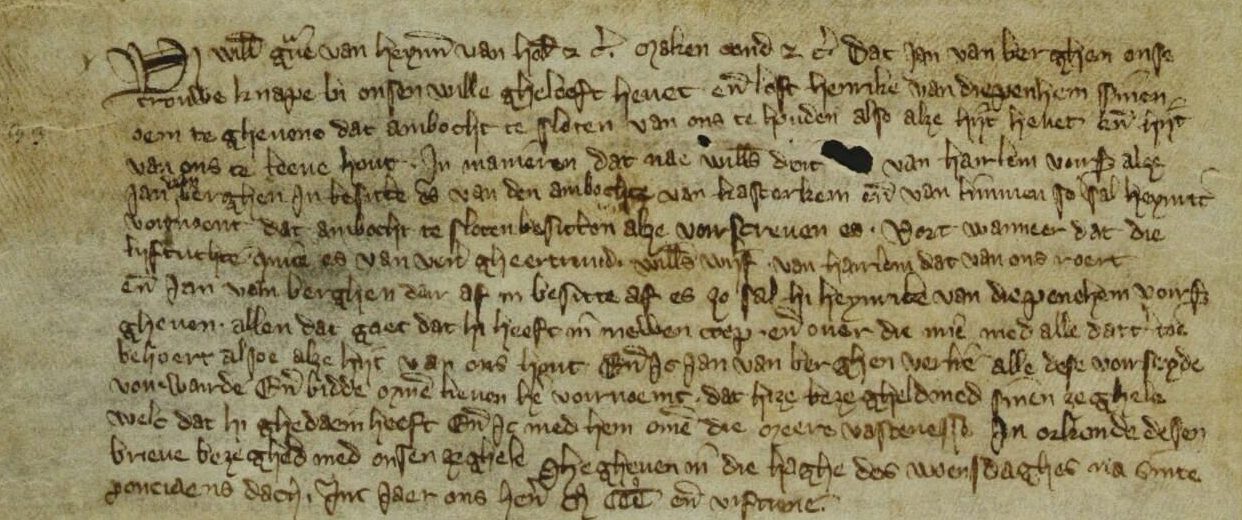 Wi Willē grūe van heynnē van holl̄ & c̄. Maken cond & c̄. Dat Jan van berghen onse
trouwe knape bi onsen wille ghelooft hevet en̄ loft henrike van diepenhem sinen
oem te ghevene dat ambocht te sloten van ons te houden also alze hijt hevet en̄ hijt
van ons te leene hout. In manieren dat nae willēs doit van hairlem voirs alze
Jan van berghen In besitte es van den ambochte van kasterkem en̄ van limmen so sal heynric
voirnoemt dat ambocht te sloten besitten alze voirscreven es. Vort wanneer dat die
lijftuchte quite es van ver gheertrud. willēs wijf. van hairlem dat van ons roert
en̄ Jan van berghen dair af in besitte af es zo sal hi heynrike van diepenehem voirs
gheven. allen dat goet dat hi heeft in niewen terp en̄ over die mie med alle datt toe
behoert alsoe alze hijt van ons hout En̄ Ic Jan van berghen verlie alle dese voirseyde
vorwairde En̄ bidde minē lieven hē voirnoemt. dat hize bezeghelt med sinen zeghele
welc dat hi ghedaen heeft En̄ Ic med hem omē die meere vastenesse In orkonde desen
brieve bezeghed med onsen zeghele Ghegheven in die haghe des woensdaghes na sinte
ponciaens dach. Int Jaer ons herē M CCC en̄ viftiene.